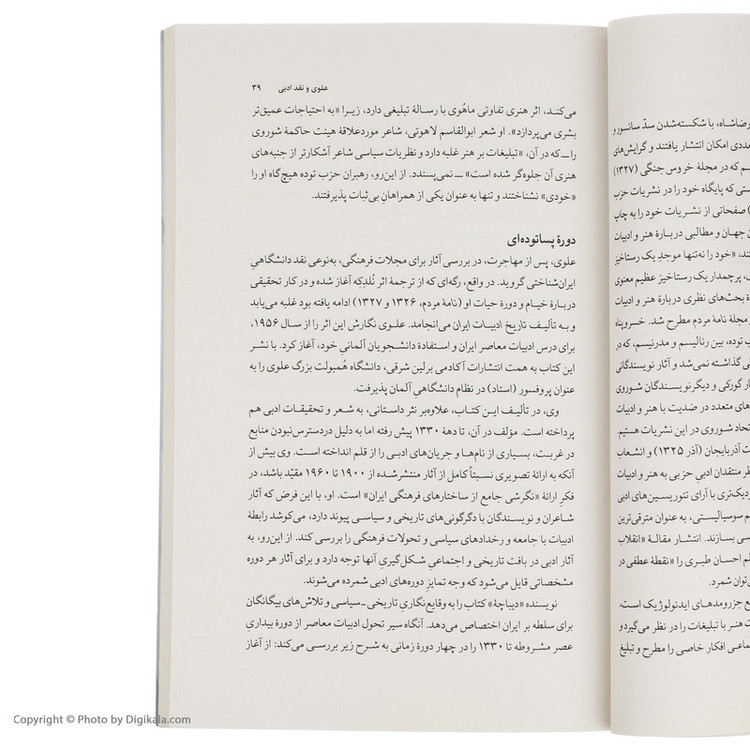 علوی و نقد ادبی ۳۹
می‌کند، اثر هنری تفاوتی ماهُوی با رسالهٔ تبلیغی دارد، زیرا «به احتیاجات عمیق‌تر
بشری می‌پردازد». او شعر ابوالقاسم لاهوتی، شاعر موردعلاقهٔ هیئت حاکمهٔ شوروی
را ــ که در آن، «تبلیغات بر هنر غلبه دارد و نظریات سیاسی شاعر آشکارتر از جنبه‌های
هنری آن جلوه‌گر شده است» ــ نمی‌پسندد. از این‌رو، رهبران حزب توده هیچ‌گاه او را
«خودی» نشناختند و تنها به عنوان یکی از همراهانِ بی‌ثبات پذیرفتند.
دورهٔ پساتوده‌ای
علوی، پس از مهاجرت، در بررسی آثار برای مجلات فرهنگی، به‌نوعی نقد دانشگاهیِ
ایران‌شناختی گروید. در واقع، رگه‌ای که از ترجمهٔ اثر نُلدِکِه آغاز شده و در کار تحقیقی
دربارهٔ خیام و دورهٔ حیات او (نامهٔ مردم، ۱۳۲۶ و ۱۳۲۷) ادامه یافته بود غلبه می‌یابد
و به تألیف تاریخ ادبیات ایران می‌انجامد. علوی نگارش این اثر را از سال ۱۹۵۶،
برای درس ادبیات معاصر ایران و استفادهٔ دانشجویان آلمانیِ خود، آغاز کرد. با نشر
این کتاب به همت انتشارات آکادمی برلین شرقی، دانشگاه هُمبولت بزرگ علوی را به
عنوان پروفسور (استاد) در نظام دانشگاهیِ آلمان پذیرفت.
وی، در تألیف این کتاب، علاوه‌بر نثر داستانی، به شعر و تحقیقات ادبی هم
پرداخته است. مؤلف در آن، تا دههٔ ۱۳۳۰ پیش رفته اما به دلیل دردسترس‌نبودن منابع
در غربت، بسیاری از نام‌ها و جریان‌های ادبی را از قلم انداخته است. وی بیش از
آنکه به ارائهٔ تصویری نسبتاً کامل از آثار منتشرشده از ۱۹۰۰ تا ۱۹۶۰ مقیّد باشد، در
فکرِ ارائهٔ «نگرشی جامع از ساختارهای فرهنگی ایران» است. او، با این فرض که آثار
شاعران و نویسندگان با دگرگونی‌های تاریخی و سیاسی پیوند دارد، می‌کوشد رابطهٔ
ادبیات با جامعه و رخدادهای سیاسی و تحولات فرهنگی را بررسی کند. از این‌رو، به
آثار ادبی در بافت تاریخی و اجتماعیِ شکل‌گیریِ آنها توجه دارد و برای آثار هر دوره
مشخصاتی قایل می‌شود که وجه تمایزِ دوره‌های ادبی شمرده می‌شوند.
نویسنده «دیباچهٔ» کتاب را به وقایع‌نگاریِ تاریخی ـ سیاسی و تلاش‌های بیگانگان
برای سلطه بر ایران اختصاص می‌دهد. آنگاه سیر تحول ادبیات معاصر از دورهٔ بیداریِ
عصر مشروطه تا ۱۳۳۰ را در چهار دورهٔ زمانی به شرح زیر بررسی می‌کند: از آغاز
رضاشاه، با شکسته‌شدن سدّ سانسور و
عددی امکان انتشار یافتند و گرایش‌های
سم که در مجلهٔ خروس جنگی (۱۳۲۷)
ستی که پایگاه خود را در نشریات حزب
) صفحاتی از نشریات خود را به چاپ
ن جهان و مطالبی دربارهٔ هنر و ادبیات
ند، «خود را نه‌تنها موجدِ یک رستاخیز
، پرچمدار یک رستاخیز عظیم معنوی
هٔ بحث‌های نظری دربارهٔ هنر و ادبیات
مجلهٔ نامهٔ مردم مطرح شد. خسروپناه
ب توده، بین رئالیسم و مدرنیسم، که در
ی گذاشته نمی‌شد و آثار نویسندگانی
ار گورکی و دیگر نویسندگان شوروی
های متعدد در ضدیت با هنر و ادبیات
تحاد شوروی در این نشریات هستیم.
ت آذربایجان (آذر ۱۳۲۵) و انشعاب
ظر منتقدان ادبیِ حزبی به هنر و ادبیات
زدیک‌تری با آرای تئوریسین‌های ادبی
م سوسیالیستی، به عنوان مترقی‌ترین
سی بسازند. انتشار مقالهٔ «انقلاب
لم احسان طبری را «نقطهٔ عطفی در
‌توان شمرد.
ع جزرومدهای ایدئولوژیک است،
ت هنر با تبلیغات را در نظر می‌گیرد و
ماعی افکار خاصی را مطرح و تبلیغ
Copyright © Photo by Digikala.com